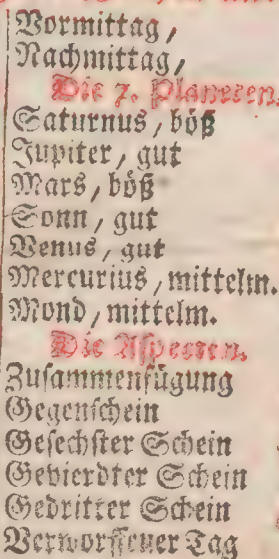 Vormittag /
Nachmittag /
Die 7. Planeten.
Saturnus / böß
Jupiter / gut
Mars / böß
Sonn / gut
Venus / gut
Mercurius / mittelm.
Mond / mittelm.
Die Aspecten.
Zusammenfügung
Gegenschein
Gesechster Schein
Gevierdter Schein
Gedritter Schein
Verworffener Tag